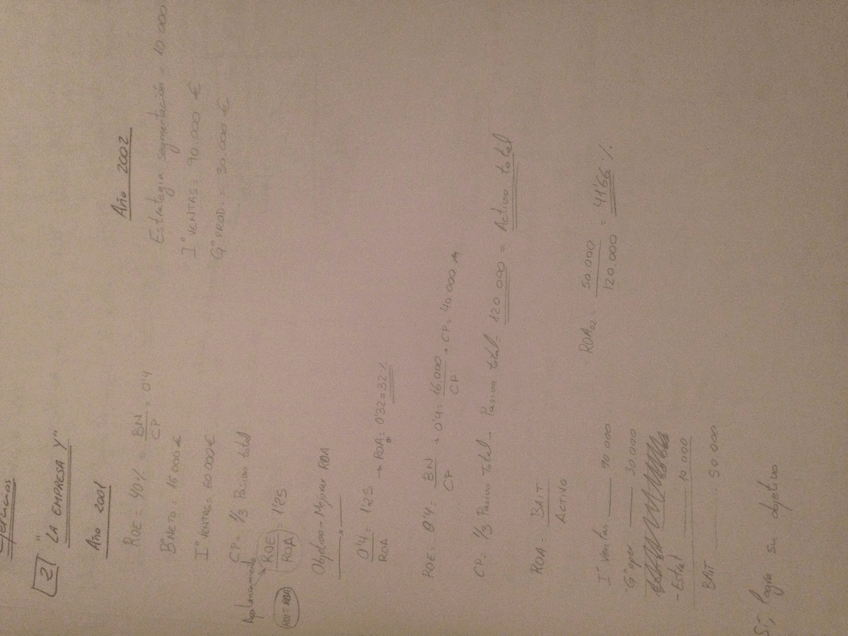 Ejercicios
2 "LA EMPRESA Y"
Año 2001
ROE = 40% = BN / CP = 0'4
Bº NETO = 16000 €
Iº VENTAS = 60000 €
CP = 1/3 Pasivo total
Apalancamiento ROE / ROA = 1'25
Año 2002
Estrategia segmentación = 10 000
Iº VENTAS = 90.000 €
Gº PROD. = 30.000 €
Objetivo - Mejorar ROA
0'4 / ROA = 1'25 → ROA = 0'32 = 32%
ROE = 0'4 = BN / CP = 0'4 = 16000 / CP = CP = 40.000
CP = 1/3 Pasivo Total - Pasivo total = 120 000 = Activo total
ROA = BAIT / Activo
Iº Ventas 90 000
Gº 30 000
- Estrat 10.000
BAIT 50 000
ROA02 = 50.000 / 120.000 = 41'66 %
Sí, logra su objetivo